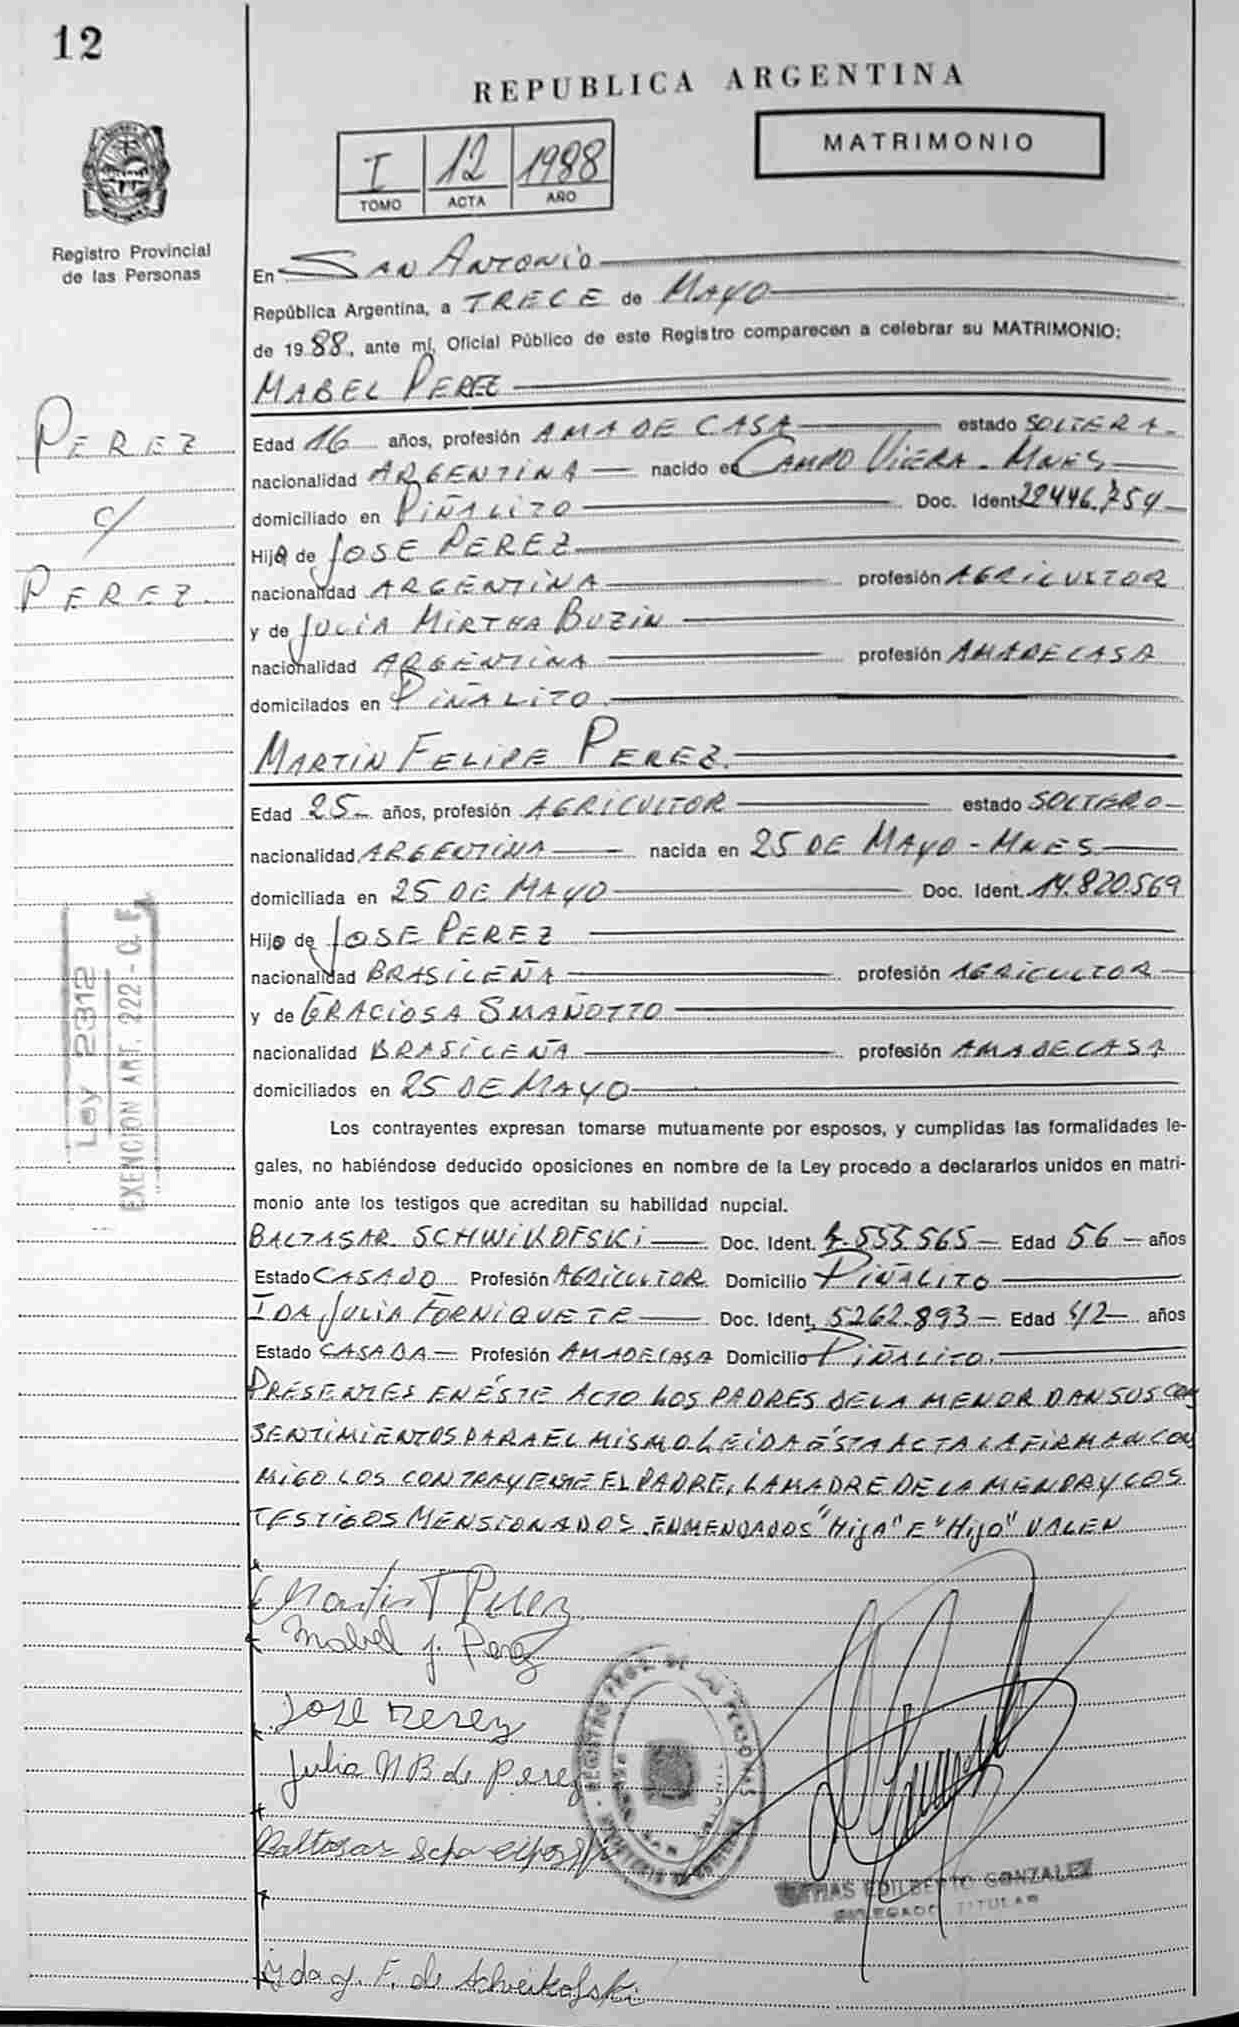 12
REPUBLICA ARGENTINA
MATRIMONIO
I 12 1988
TOMO ACTA AÑO
Registro Provincial
de las Personas
En SAN ANTONIO
República Argentina, a TRECE de MAYO
de 1988, ante mí, Oficial Público de este Registro comparecen a celebrar su MATRIMONIO:
MABEL PEREZ
PEREZ
c/
PEREZ
Edad 16 años, profesión AMA DE CASA estado SOLTERA
nacionalidad ARGENTINA nacido en CAMPO VIERA - MNES
domiciliado en PIÑALITO Doc. Ident. 22446.754
Hija de JOSE PEREZ
nacionalidad ARGENTINA profesión AGRICULTOR
y de JULIA MIRTHA BUZIN
nacionalidad ARGENTINA profesión AMADECASA
domicilados en PIÑALITO.
MARTIN FELIPE PEREZ.
Edad 25 años, profesión AGRICULTOR estado SOLTERO
nacionalidad ARGENTINA nacida en 25 DE MAYO - MNES
domiciliada en 25 DE MAYO Doc. Ident. 14.820.569
Hijo de JOSE PEREZ
nacionalidad BRASILEÑA profesión AGRICULTOR
y de GRACIOSA SMAÑOTTO
nacionalidad BRASILEÑA profesión AMADECASA
domiciliados en 25 DE MAYO
Ley 2312
EXENCION ART. 222 -
Los contrayentes expresan tomarse mutuamente por esposos, y cumplidas las formalidades le-
gales, no habiéndose deducido oposiciones en nombre de la Ley procedo a declararlos unidos en matri-
monio ante los testigos que acreditan su habilidad nupcial.
BALTASAR SCHWIKOFSKI Doc. Ident. 4.555.565 Edad 56 años
Estado CASADO Profesión AGRICULTOR Domicilio PIÑALITO
IDA JULIA FORNIQUETE Doc. Ident. 5262.893 Edad 42 años
Estado CASADA Profesión AMADECASA Domicilio PIÑALITO.
PRESENTES EN ÉSTE ACTO LOS PADRES DE LA MENOR DAN SUS CON
SENTIMIENTOS PARA EL MISMO LEIDA ÉSTA ACTA LA FIRMAN CON
MIGO LOS CONTRAYENTE EL PADRE, LA MADRE DE LA MENOR Y LOS
TESTIGOS MENSIONADOS. ENMENDADOS "HIJA" E "HIJO" VALEN
Martin F Perez
Mabel J. Perez
José Perez
Julia M B de Perez
REGISTRO PROV. DE LAS PERSONAS
Baltasar
EDILBERTO GONZALEZ
DELEGADO TITULAR
Ida J. F. de Scheikofski